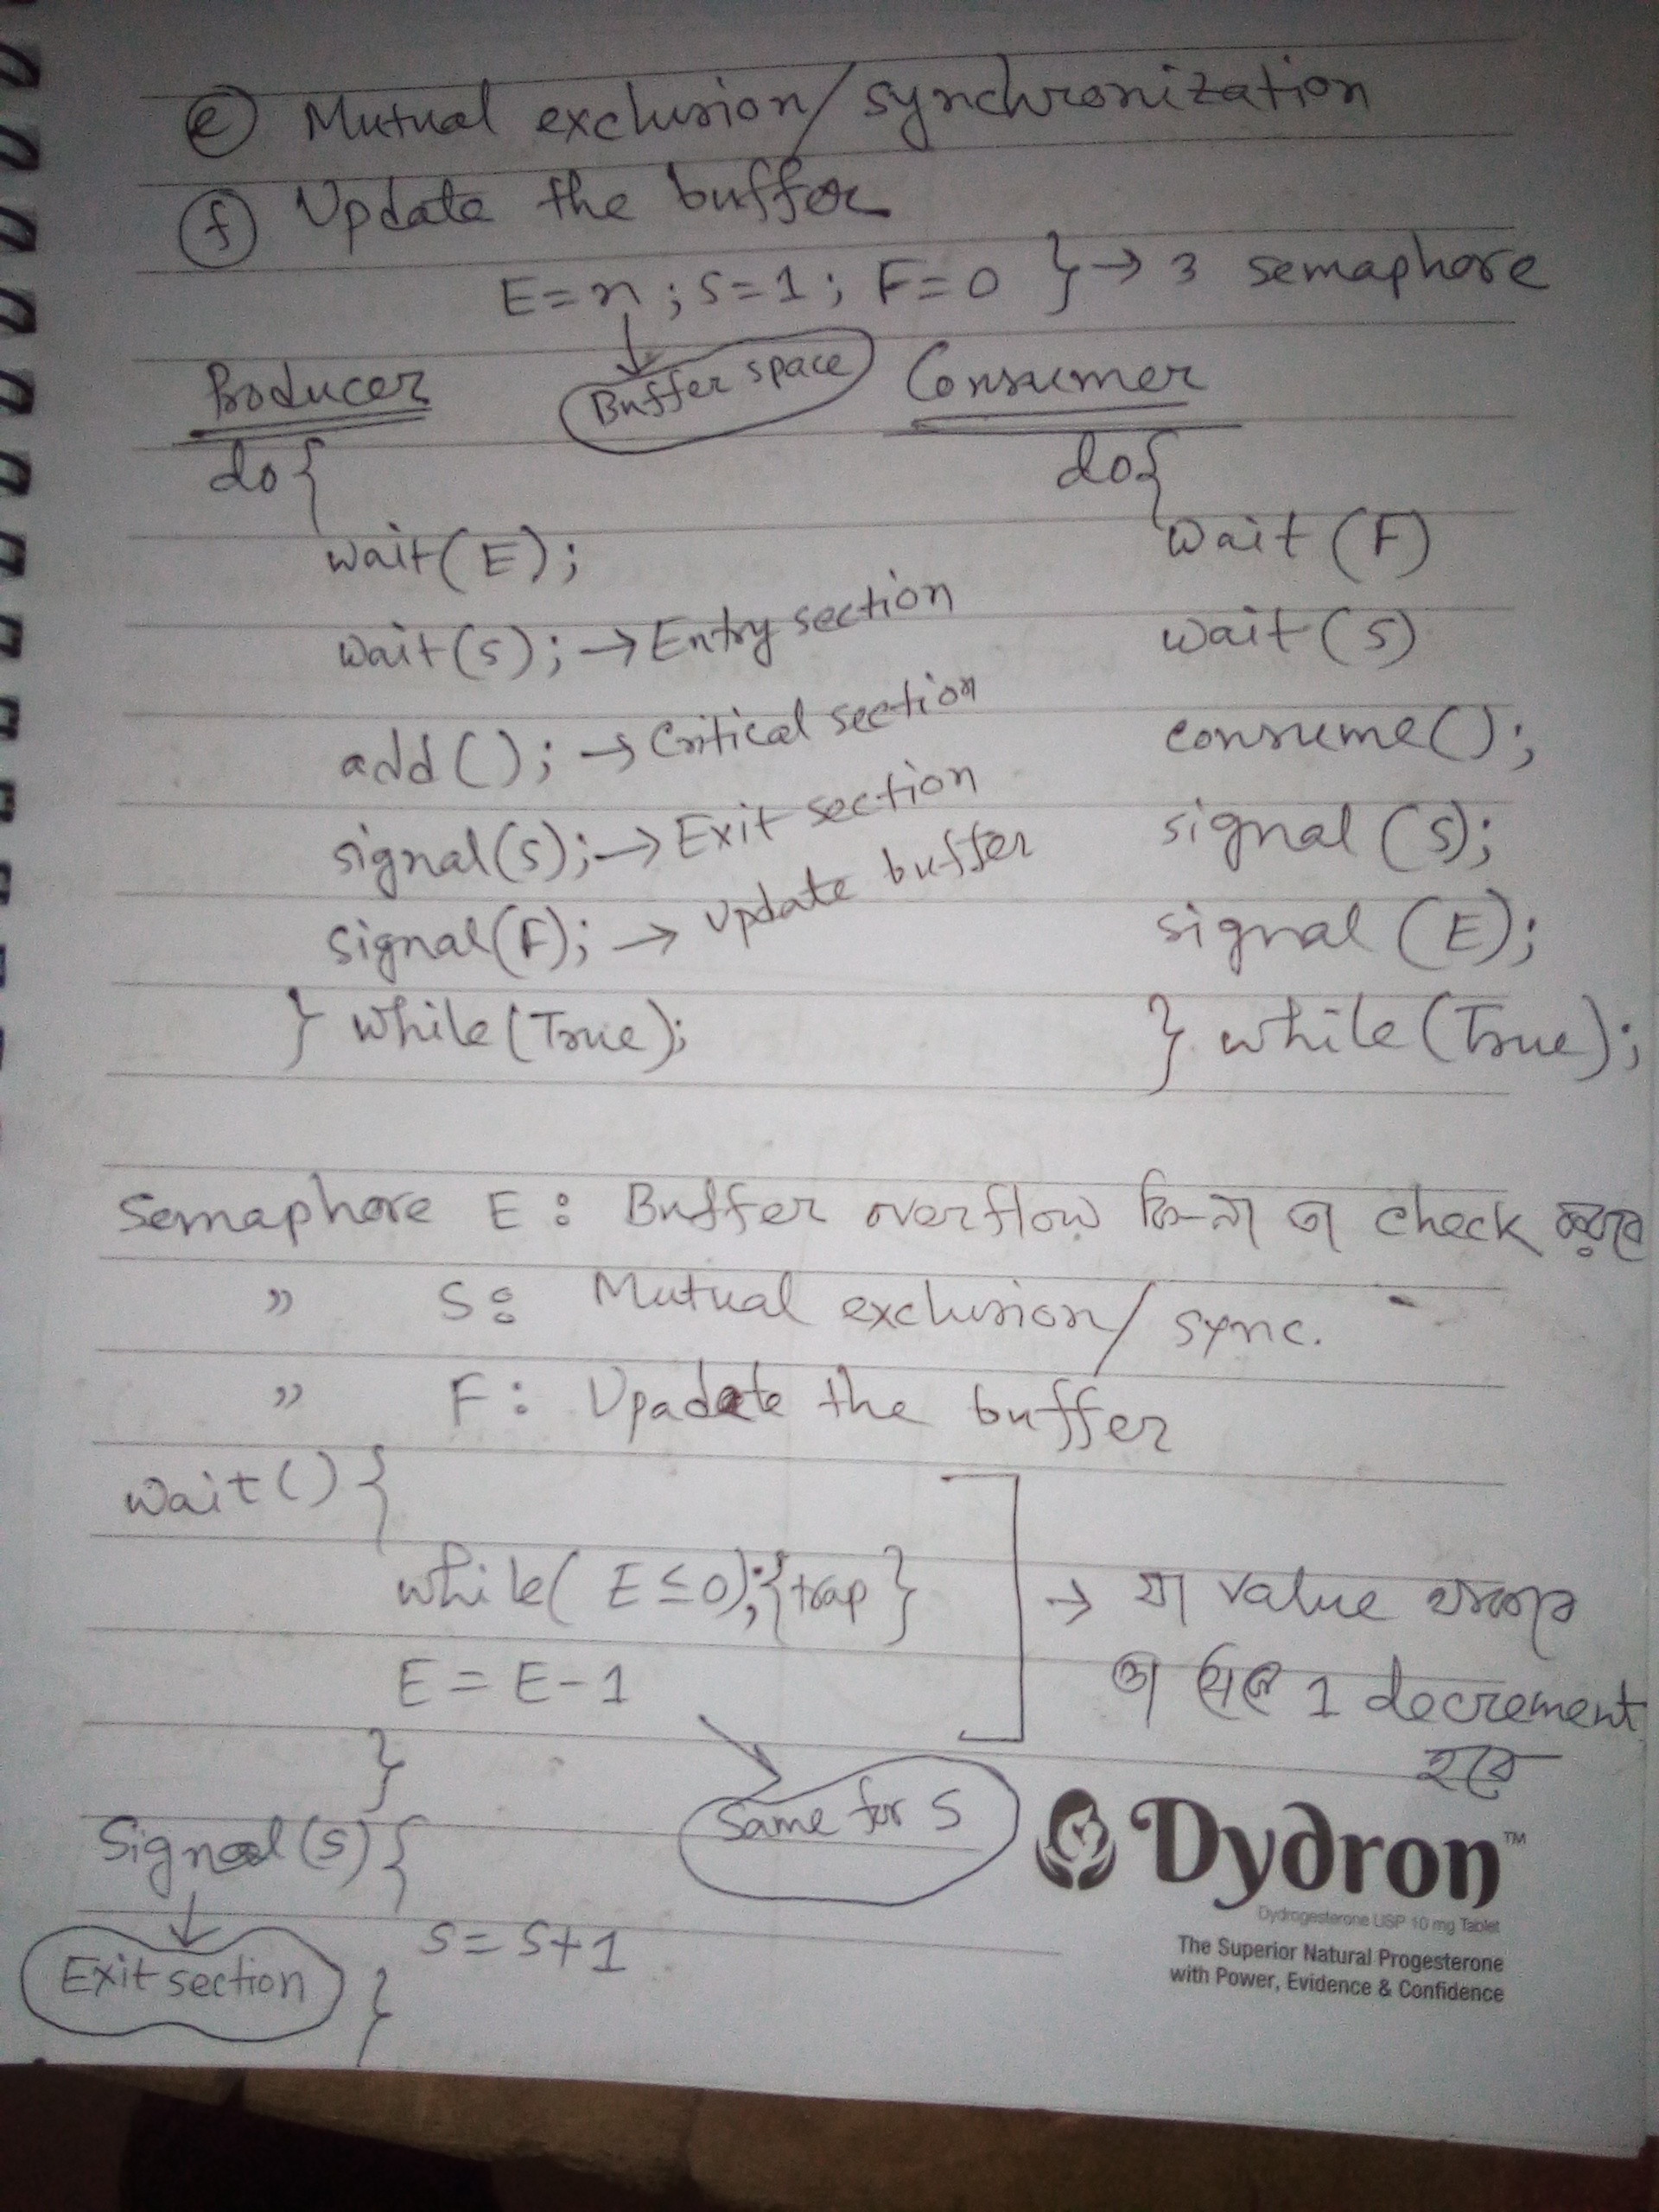 (e) Mutual exclusion/synchronization
(f) Update the buffer
E=n; S=1; F=0 } → 3 semaphore
Buffer space
Producer
do{
wait(E);
wait(s); → Entry section
add(); → Critical section
signal(s); → Exit section
signal(F); → update buffer
} while(True);
Consumer
do{
wait(F)
wait(s)
consume();
signal(s);
signal(E);
} while(True);
Semaphore E: Buffer overflow কি-না তা check করবে
" S: Mutual exclusion/sync.
" F: Upadate the buffer
wait(){
while(E≤0);{trap}
E=E-1
}
→ যা value থাকবে
তা থেকে 1 decrement
হবে
Same for S
Signal(s){
s=s+1
}
Exit section
Dydron™
Dydrogesterone USP 10 mg Tablet
The Superior Natural Progesterone
with Power, Evidence & Confidence